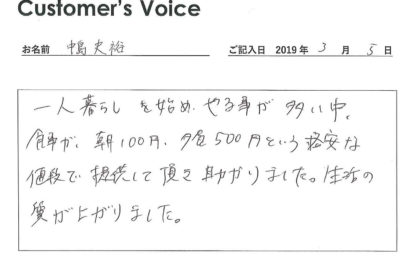 Customer's Voice
お名前 中島史裕 ご記入日 2019年 3 月 5 日
一人暮らしを始め、やる事が多い中、
食事が、朝100円、夕食500円という格安な
値段で提供して頂き助かりました。生活の
質が上がりました。